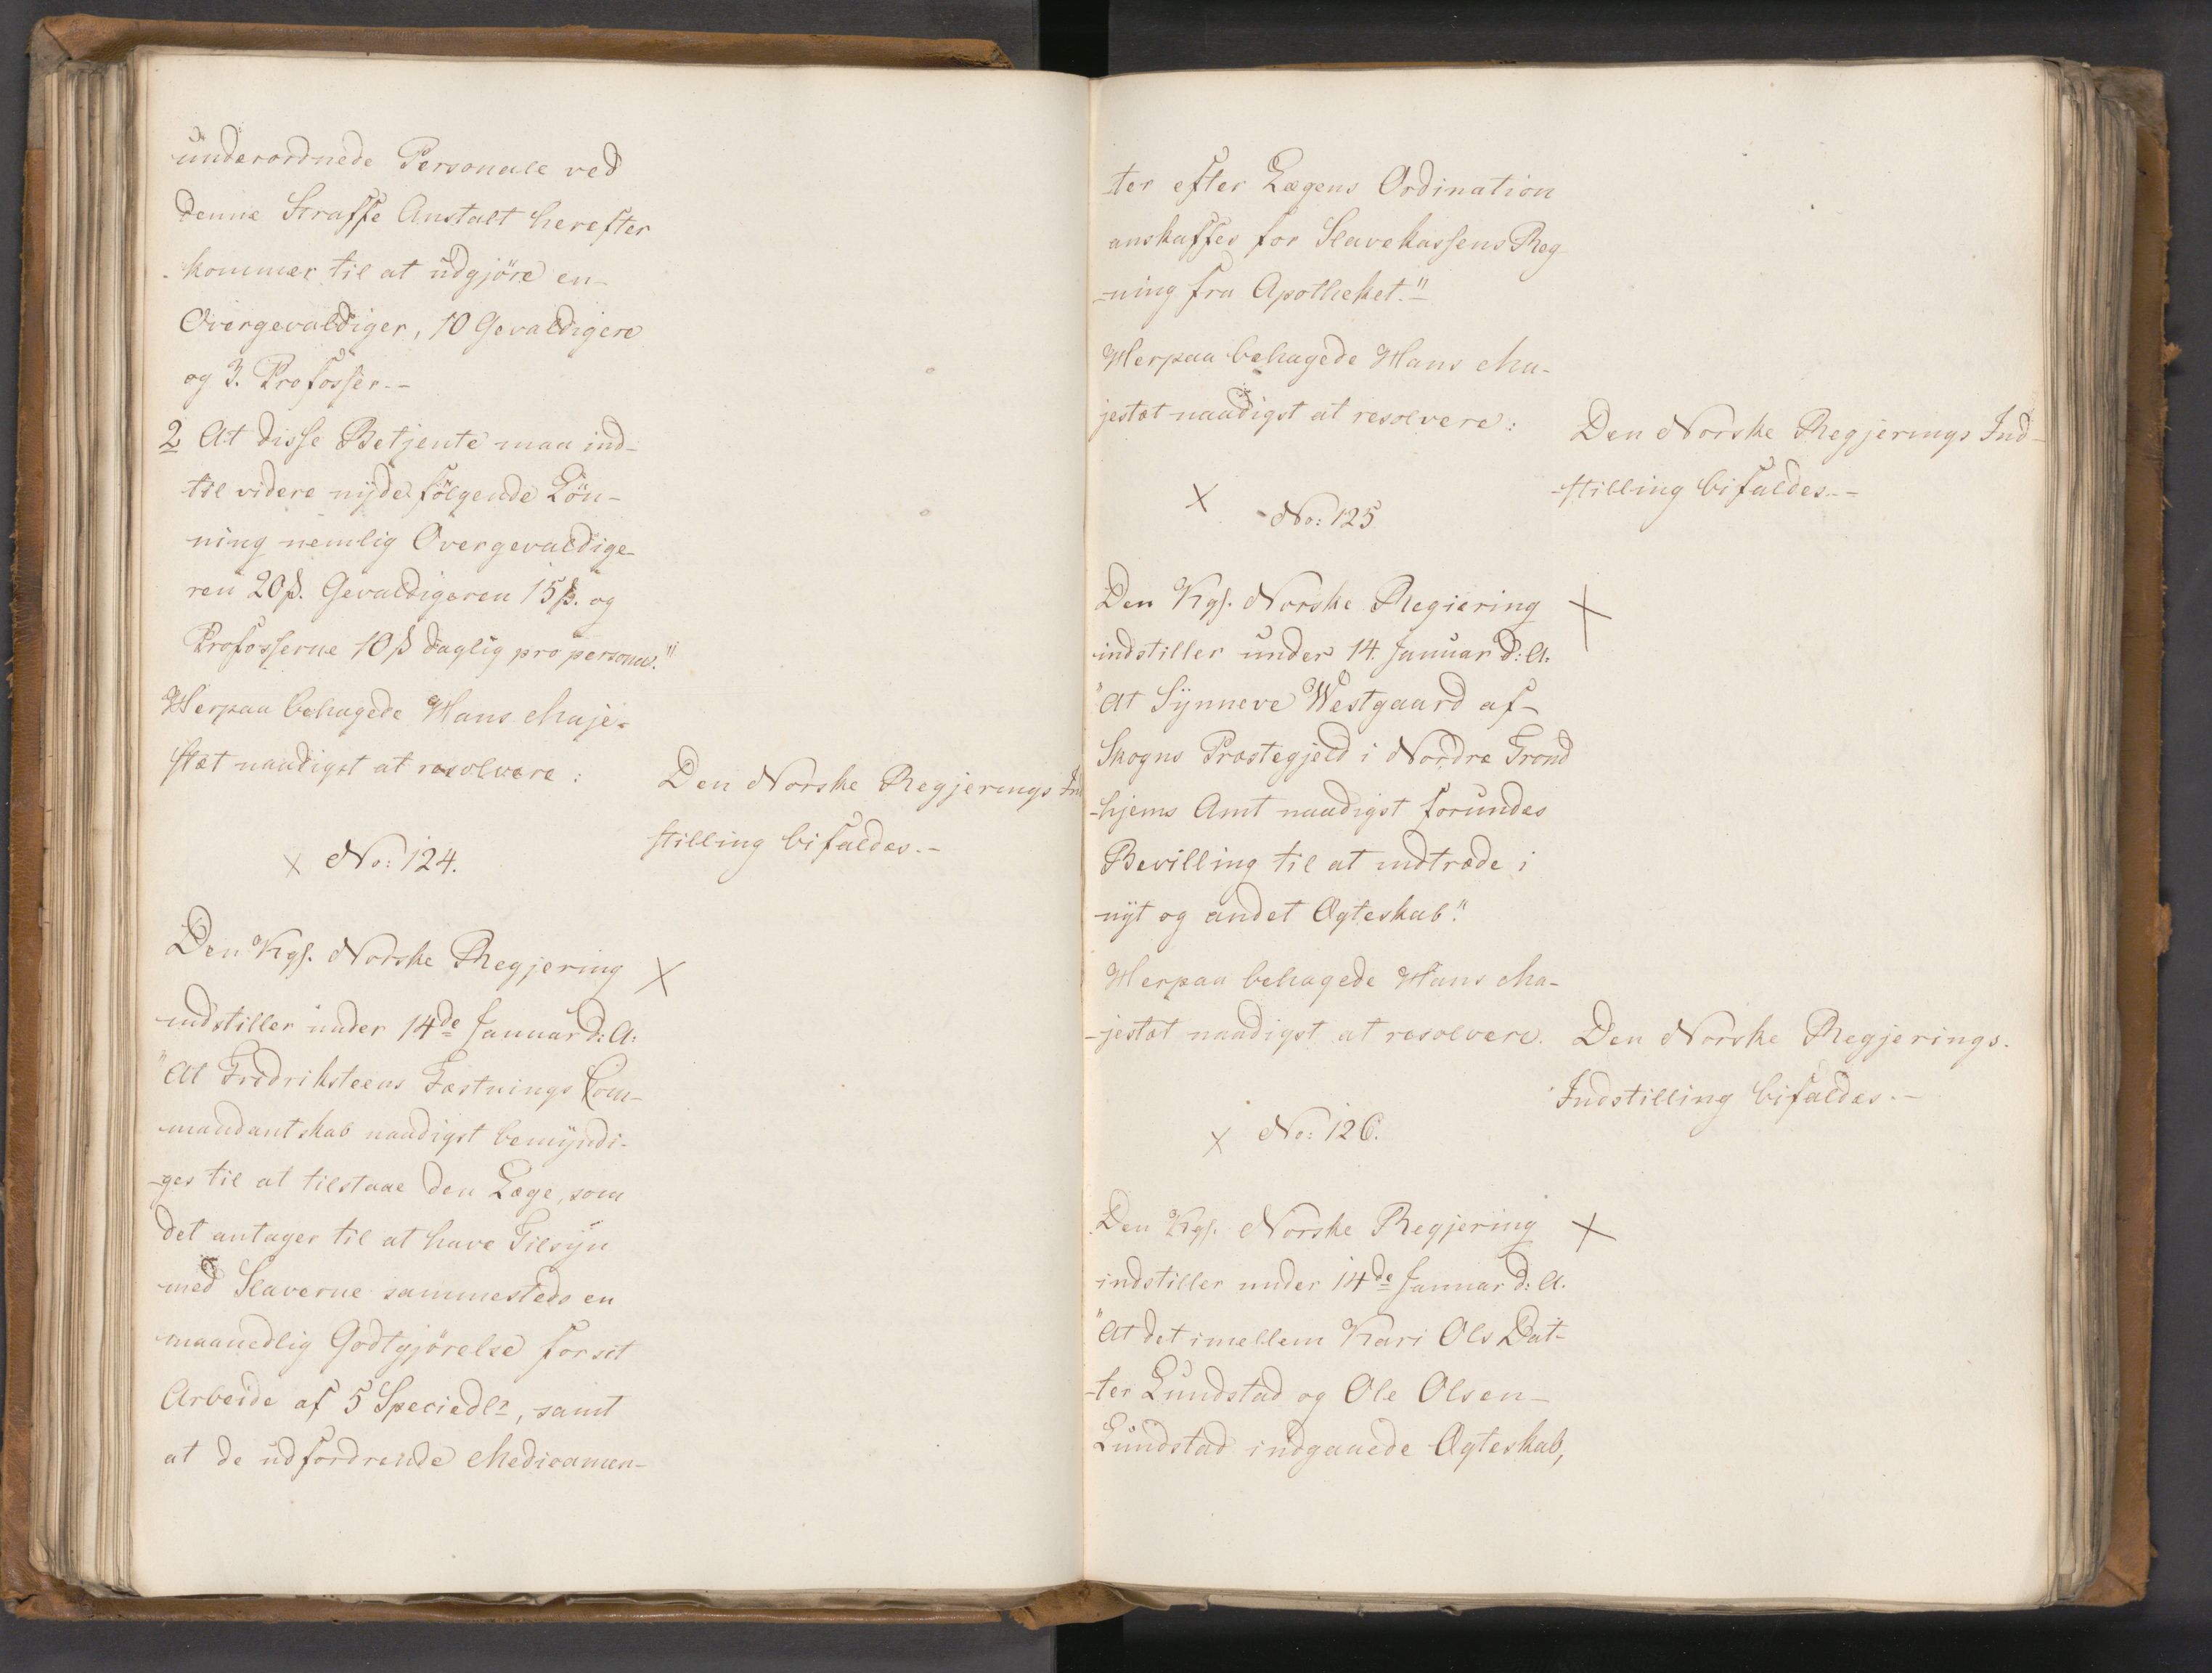 underordnede Personale ved
denne Straffe Anstalt herefter
kommer til at udgjöre en
Overgevaldiger, 10 Gevaldigere
og 3. Profosser.-
2 At disse Betjente maa ind-
til videre nyde følgende Løn-
ning nemlig Overgevaldige
ren 20 ß. Gevaldigeren 15 ß. og
Profosserne 10 ß daglig pro persona."
Herpaa behagede Hans Maje-
stæt naadigst at resolvere:
Den Norske Regjerings Ind
stilling bifaldes.-
x No: 124.
Den Kgl. Norske Regjering x
indstiller under 14de Januar d: A:
"At Fredriksteens Fæstnings Com-
mandantskab naadigst bemyndi-
-ges til at tilstaae den Læge, som
det antager til at have Tilsyn
med Slaverne sammesteds en
maanedlig Godtgjörelse for sit
Arbeide af 5 Speciedlr, samt
at de udfordrende Medicamen-
ter efter Lægens Ordination
anskaffes for Slavekassens Reg
-ning fra Apotheket."
Herpaa behagede Hans Ma-
jestæt naadigst at resolvere:
Den Norske Regjerings Ind-
-stilling bifaldes.-
x No: 125
Den Kgl. Norske Regiering x
indstiller under 14. Januar d: A.
"At Synneve Westgaard af
Skogns Præstegjeld i Nordre Trond
-hjems Amt naadigst forundes
Bevilling til at indtræde i
nyt og andet Ægteskab."
Herpaa behagede Hans Ma-
-jestæt naadigst at resolvere.
Den Norske Regjerings.
Indstilling bifaldes.-
x No: 126.
Den Kgl. Norske Regjering x
indstiller under 14de Januar d: A.
"At det imellem Kari Ols Dat-
-ter Lundstad og Ole Olsen
Lundstad indgaaede Ægteskab,